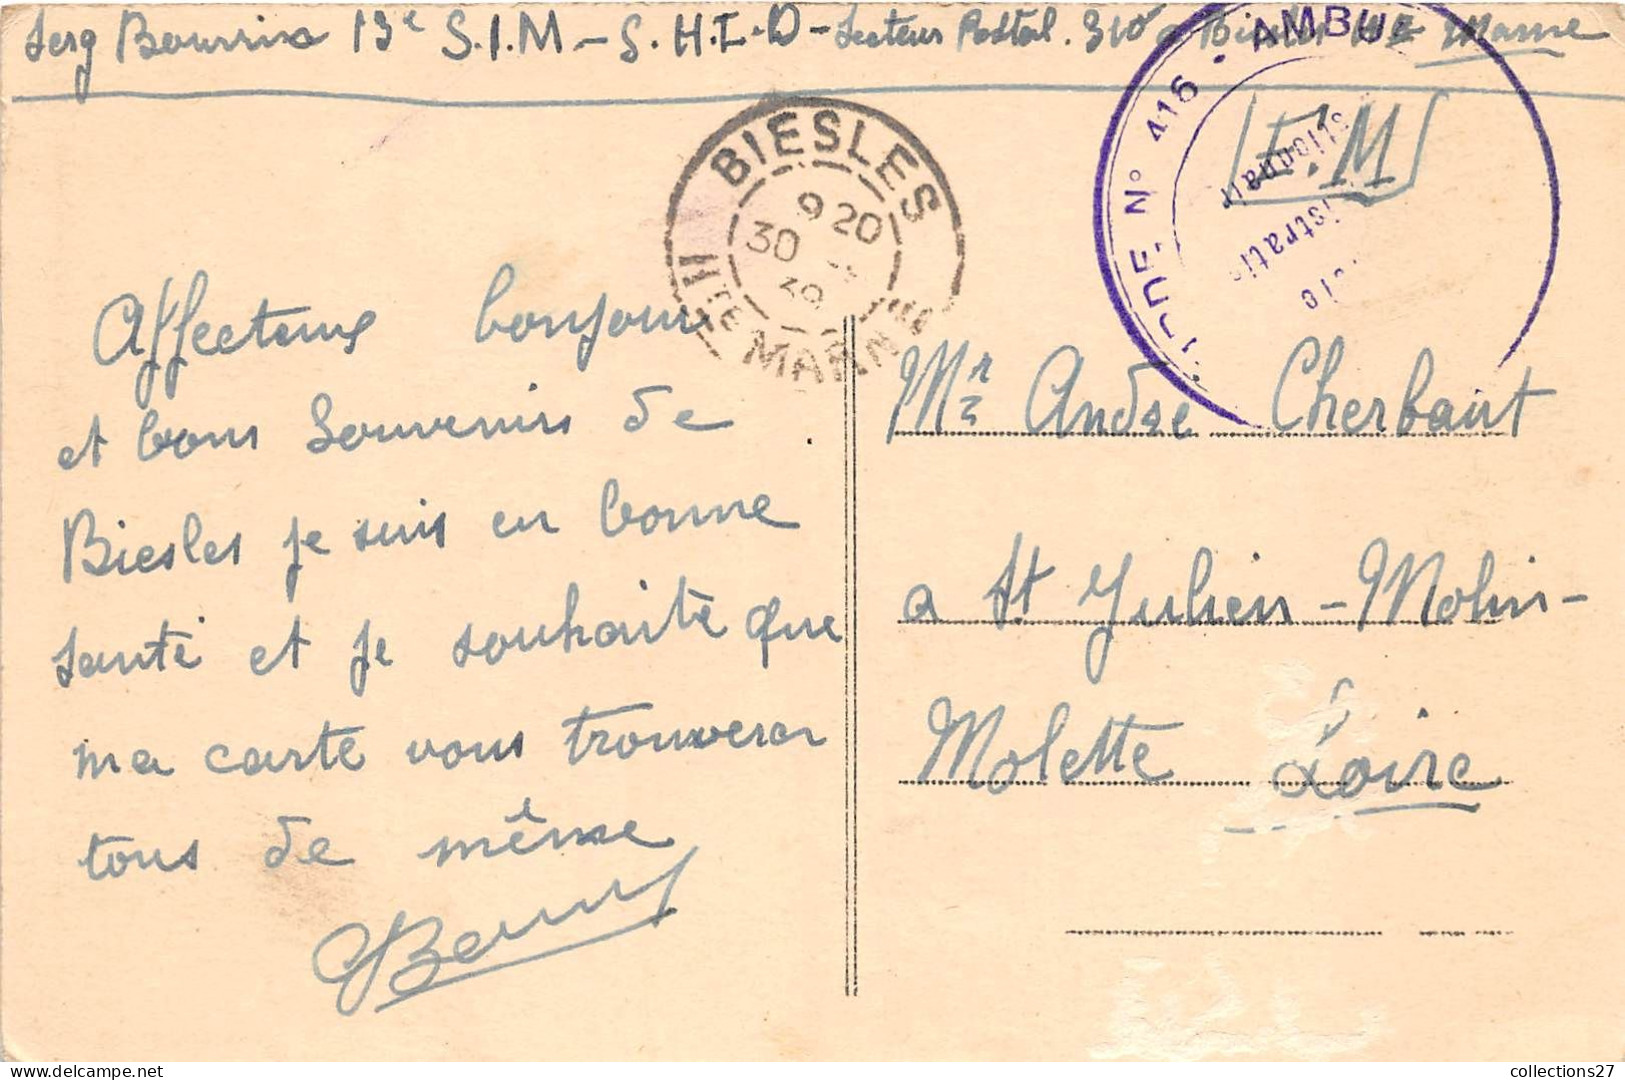 Serg Bourrix 13e S.I.M - S.H.I.D - Secteur Postal. 310 a Biesles Hte Marne
AMBU
N° 416
F.M
BIESLES
9 20
30
39
Hte MARNE
Affectueux bonjour
et bons Souvenirs de
Biesles je suis en bonne
santé et je souhaite que
ma carte vous trouverar
tous de même
Mr André Cherbaut
a St Julien - Molin-
Molette Loire
collections27